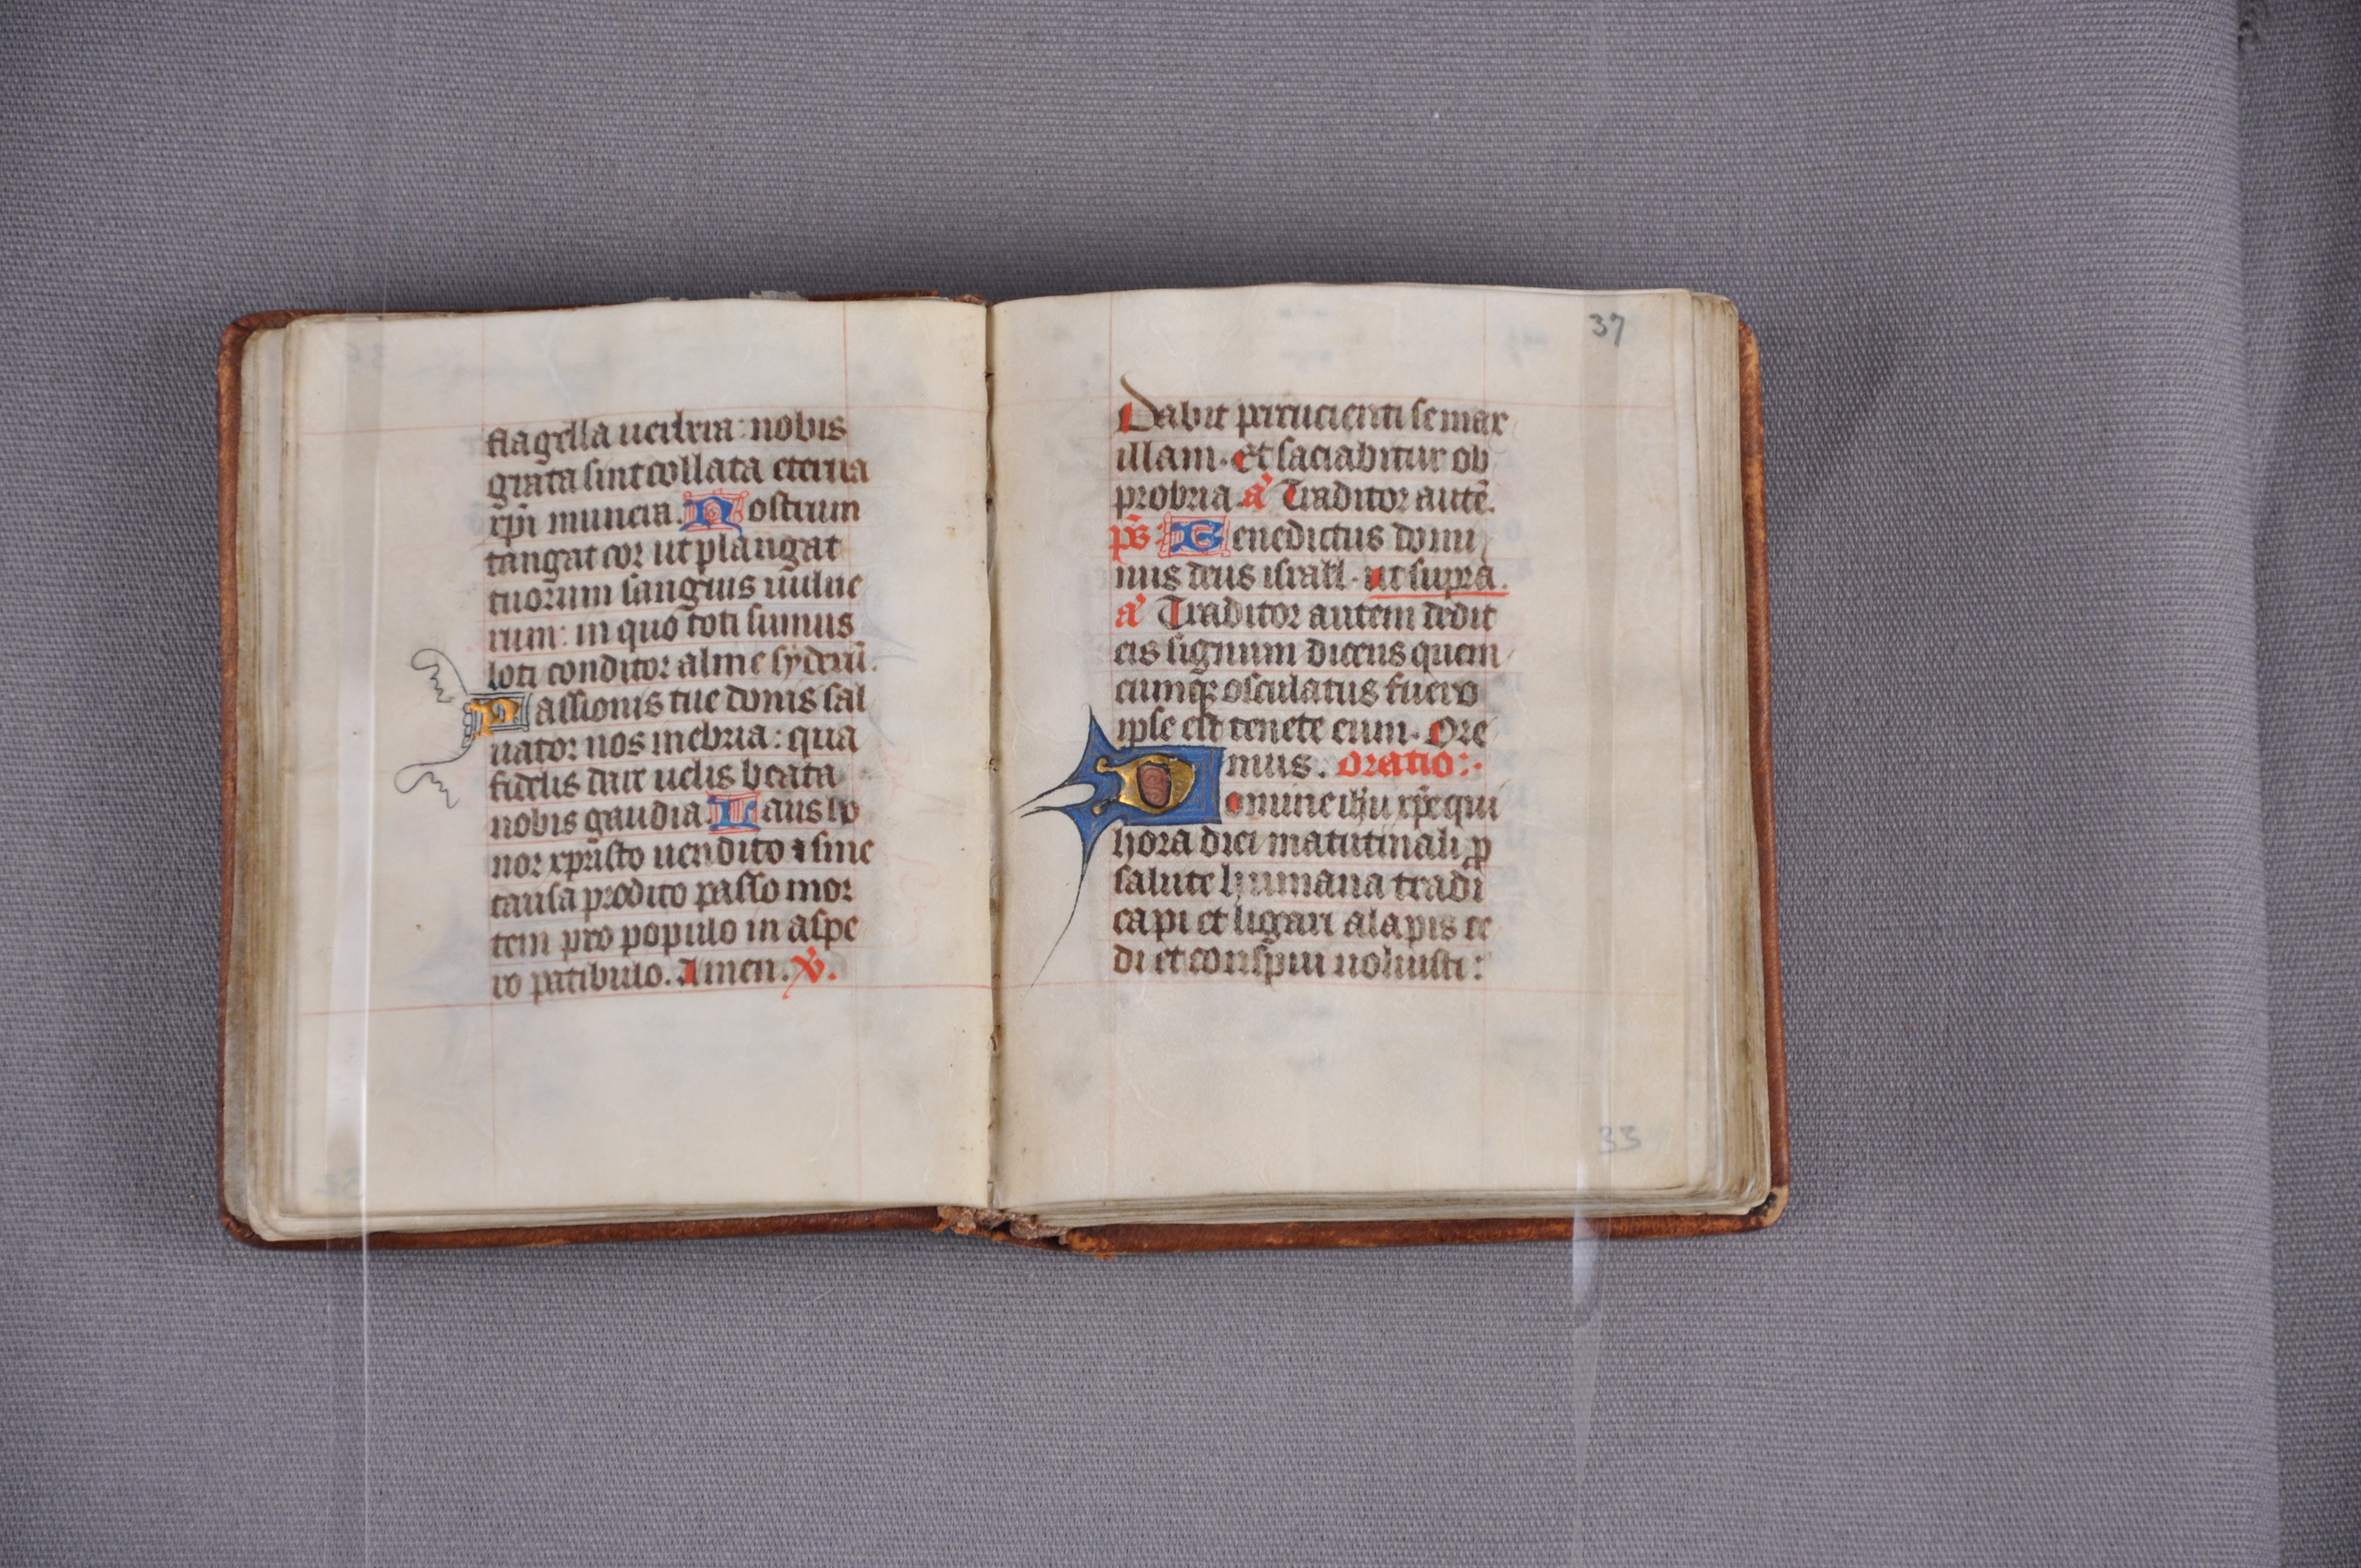 flagella uerbera: nobis
grata sint collata eterna
xpi munera. Nostrum
tangat cor ut plangat
tuorum sanguis uulne
rum: in quo toti sumus
loti conditor alme syderū.
Passionis tue donis sal
uator nos inebria: qua
fidelis dare uelis beata
nobis gaudia. Laus ho
nor xpristo uendito ⁊ sine
causa prodito passo mor
tem pro populo in aspe
ro patibulo. Amen. ℣.
37
Dabit percucienti se max
illam. Et saciabitur ob
probria. a' Traditor autē.
ps̄. Benedictus domi
nus deus israhl. ut supra.
a' Traditor autem dedit
eis signum dicens quem
cumqꝫ osculatus fuero
ipse est tenete eum. Ore
mus. Oratio:.
Domine ihu xp̄e qui
hora diei matutinali ꝓ
salute humana tradi
capi et ligari alapis ce
di et conspui uoluisti:
33